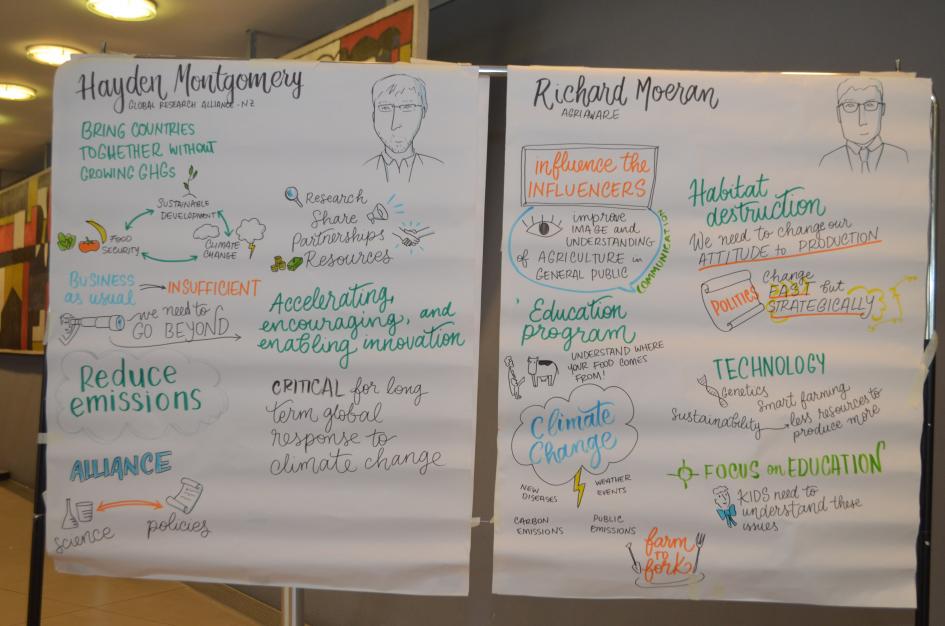 Hayden Montgomery
GLOBAL RESEARCH ALLIANCE - NZ
BRING COUNTRIES
TOGHETHER WITHOUT
GROWING GHGs
SUSTAINABLE
DEVELOPMENT
FOOD
SECURITY
CLIMATE
CHANGE
Research
Share
Partnerships
Resources
BUSINESS
as usual
INSUFFICIENT
we need to
GO BEYOND
Accelerating,
encouraging, and
enabling innovation
Reduce
emissions
CRITICAL for long
term global
response to
climate change
ALLIANCE
science
policies
Richard Moeran
AGRIAWARE
influence the
INFLUENCERS
improve
IMAGE and
UNDERSTANDING
of AGRICULTURE in
GENERAL PUBLIC
COMMUNICATION
Education
program
UNDERSTAND WHERE
YOUR FOOD COMES
FROM!
Climate
Change
NEW
DISEASES
WEATHER
EVENTS
CARBON
EMISSIONS
PUBLIC
EMISSIONS
farm
TO
fork
Habitat
destruction
We need to change our
ATTITUDE to PRODUCTION
POLITICS
Change
FAST but
STRATEGICALLY
TECHNOLOGY
Genetics
Smart farming
Sustainability
less resources to
produce more
FOCUS on EDUCATION
KIDS need to
understand these
issues